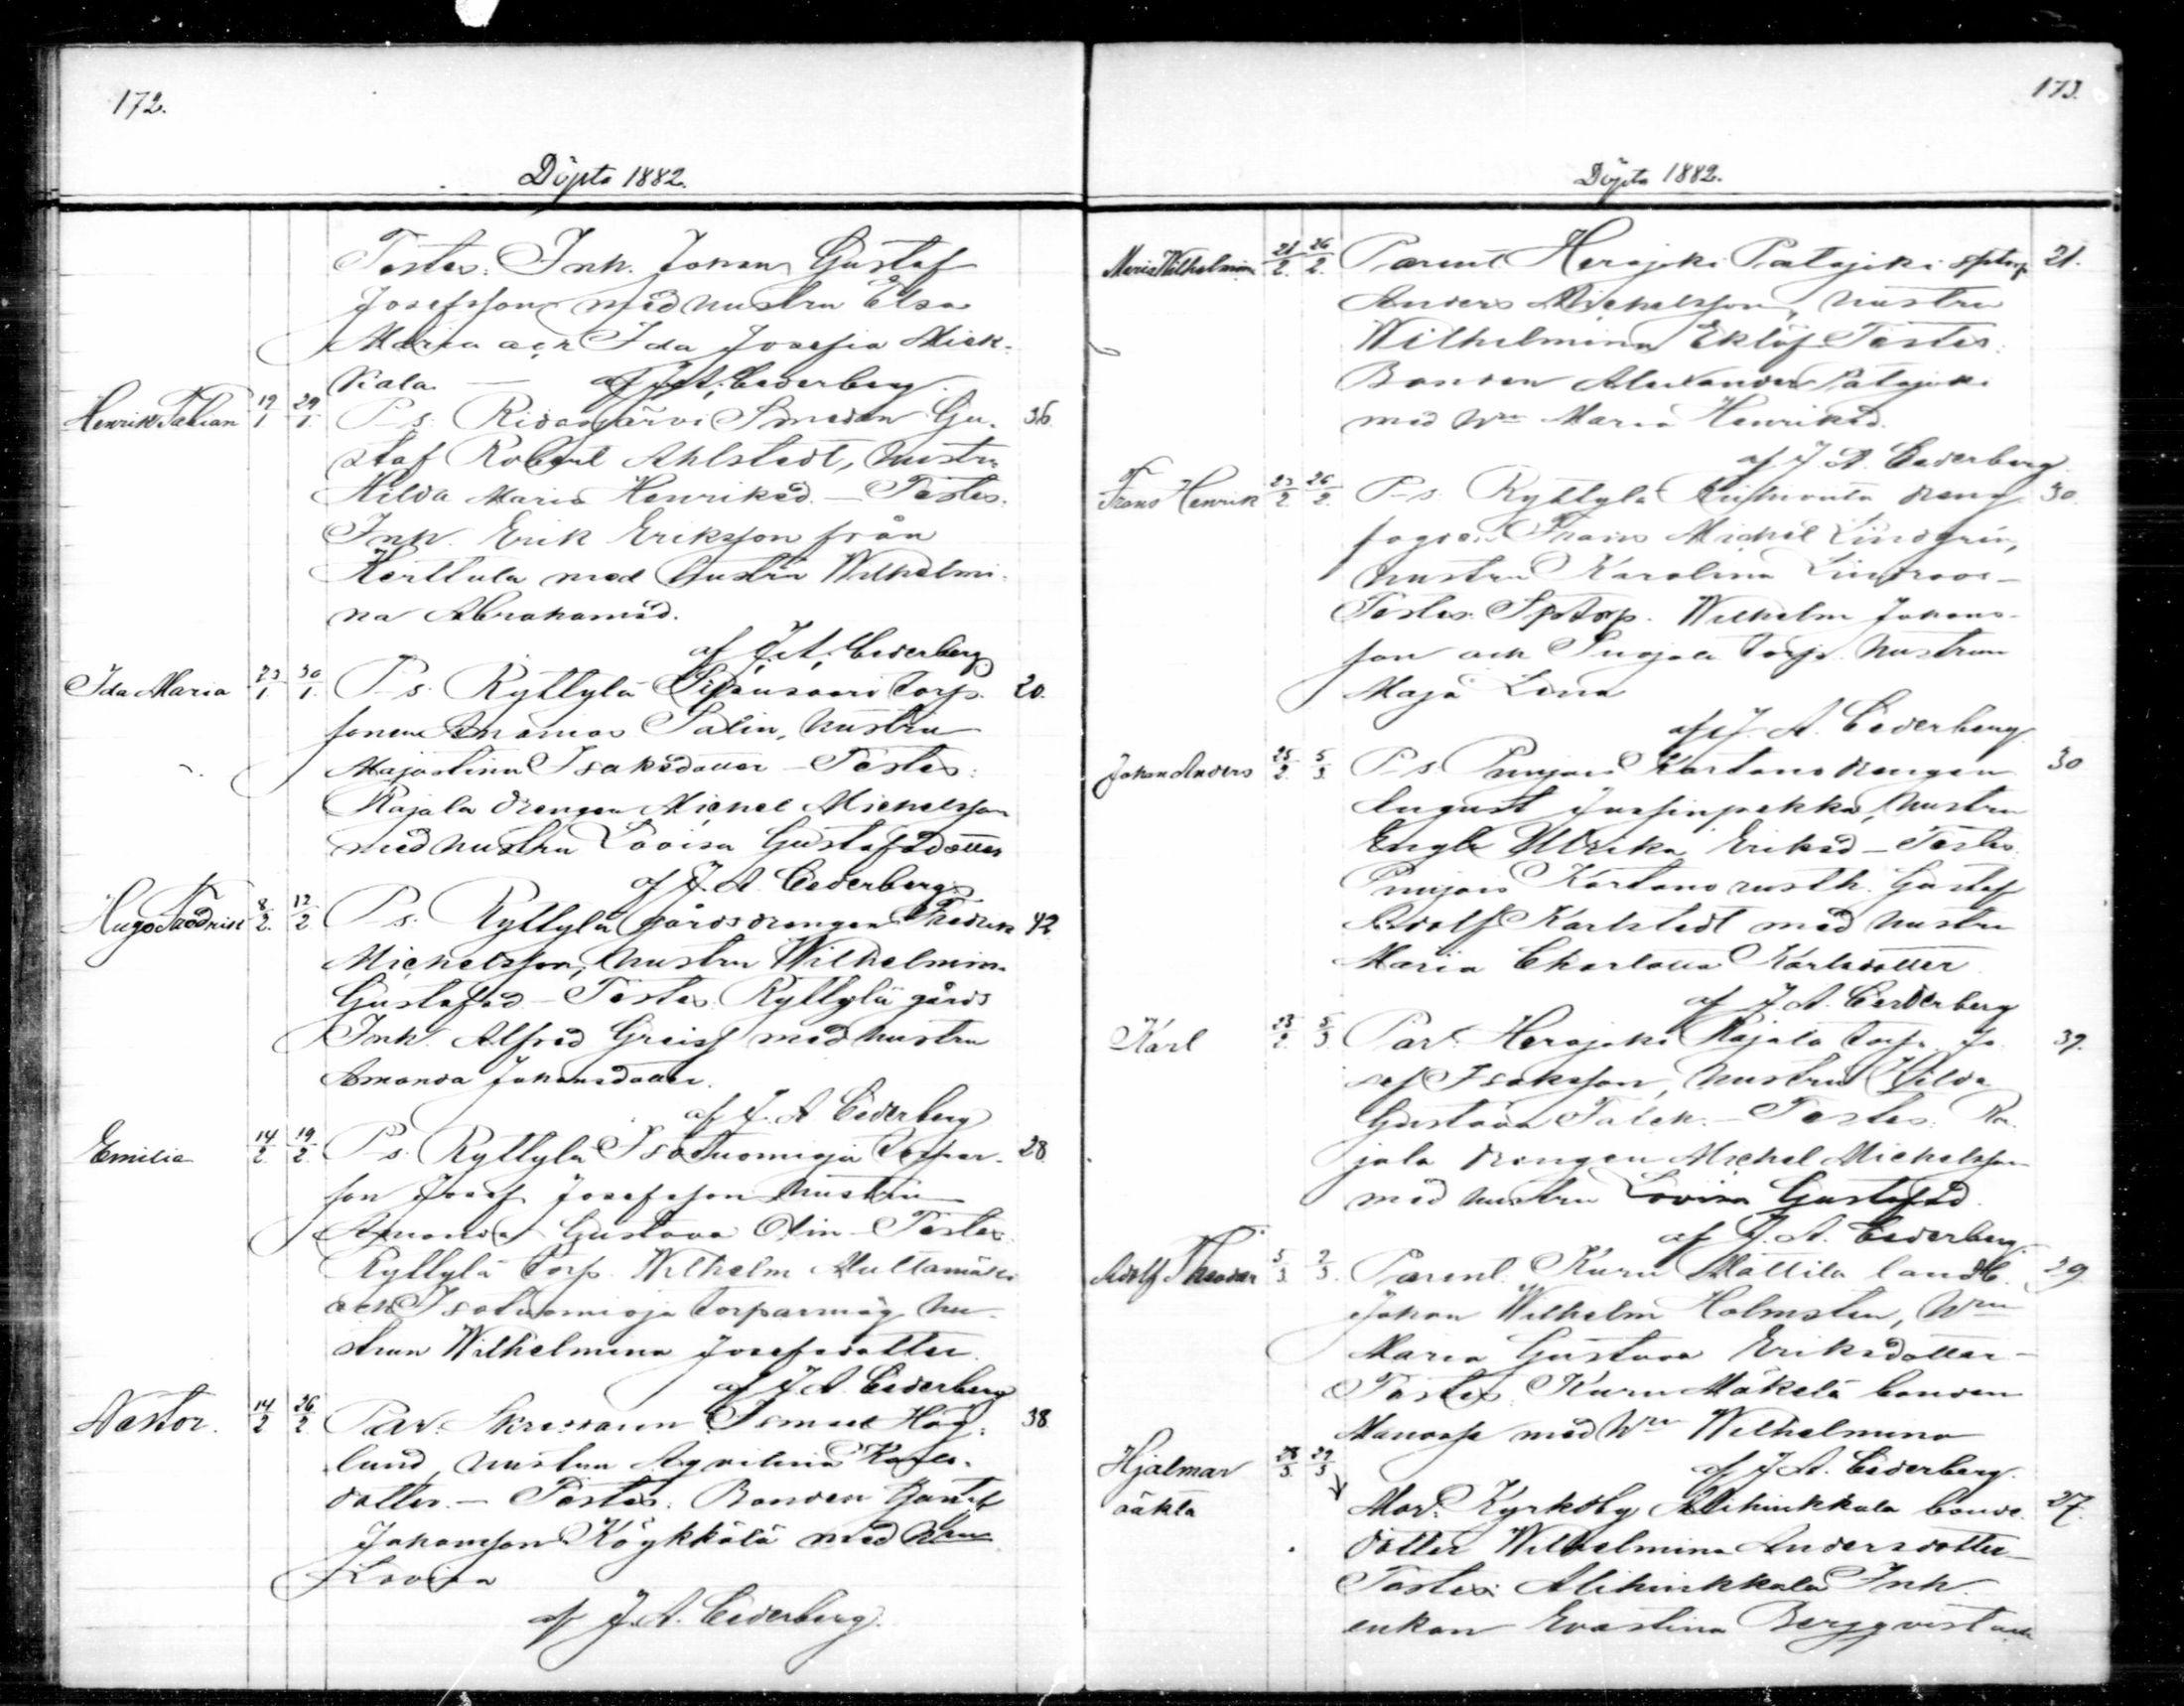 172.
Döpta 1882.
Testes: Inh. Johan Gustaf
Josefsson med hustru Elsa
Maria och Ida Josefia Mick-
kala — af J. A. Cederberg.
Henrik Fabian 19/1 29/1 P-s: Ridasjärvi Smeden Gu- 36.
staf Robert Ahlstedt, hustru
Hilda Maria Henriksd. — Testes.
Inh. Erik Eriksson från
Kerttula med hustru Wilhelmi-
na Abrahamsd.
af J. A. Cederberg
Ida Maria 23/1 30/1 P-s: Ryttylä torp- 20.
sonen Salin, hustru
Majastina Isaksdotter — Testes:
Rajala drengen Michel Michelsson
med hustru Lovisa Gustafsdotter
af J. A. Cederberg
Hugo Fredrik 8/2 12/2 P-s: Ryttylä gårdsdrengen Fredrik 42.
Michelsson, hustru Wilhelmina
Gustafsd — Testes: Ryttylä gårds
Inh. Alfred med hustru
Amanda Johansdotter.
af J. A. Cederberg
Emilia 14/2 19/2 P-s: Ryttylä Isotuomioja torpar- 28.
son Josef Josefsson hustru
Amanda Gustava Olin — Testes
Ryttylä torp. Wilhelm Multamäki
och Isotuomioja torparmåg hu-
strun Wilhelmina Josefsdotter.
af J. A. Cederberg
Nestor. 14/2 26/2 Par: Hög- 38
lund, hustru Karls-
dotter. — Testes: Bonden Gustaf
Johansson Köykkälä med hru
Lovisa
af J. A. Cederberg.
173.
Döpta 1882.
Maria Wilhelmina 21/2 26/2 Parent. Herajoki Patajoki sptorp 21.
Anders Michelsson, hustru
Wilhelmina Eklöf Testes:
Bonden Alexander Patajoki
med hru Maria Henriksd.
af J. A. Cederberg
Frans Henrik 23/2 26/2 P-s: Ryttylä dreng 30.
Frans Michel Lindgren,
hustru Karolina Lindroos —
Testes: Sptorp. Wilhelm Johans-
son och Suojala torp. hustrun
Maja Lena
af J. A. Cederberg
Johan Anders 25/2 5/3 P-s Punjois Kartano drengen 30
August Jussinpekka, hustru
Engla Ulrika Eriksd — Testes
Punjois Kartano rusth. Gustaf
Adolf Karlstedt med hustru
Maria Charlotta Karlsdotter
af J. A. Cederberg
Karl 23/2 5/3 Par: Herajoki Rajala torp. Jo- 39.
sef Isaksson, hustru Hilda
Gustava Falck. — Testes: Ra-
jala drengen Michel Michelsson
med hustru Lovisa Gustafsd.
af J. A. Cederberg.
Adolf Theodor 5/3 7/3 Parent. Kuru Mattila landb. 29
Johan Wilhelm Holmsten, hru
Maria Gustava Eriksdotter —
Testes: Kuru Mäkelä bonden
med hru Wilhelmina
af J. A. Cederberg.
Hjalmar 28/3 29/3
oäkta Mod: Kyrkoby Alihinkkala bonde- 27.
dotter Wilhelmina Andersdotter —
Testes: Alihinkkala Inh.
enkan Evastina Bergqvist och